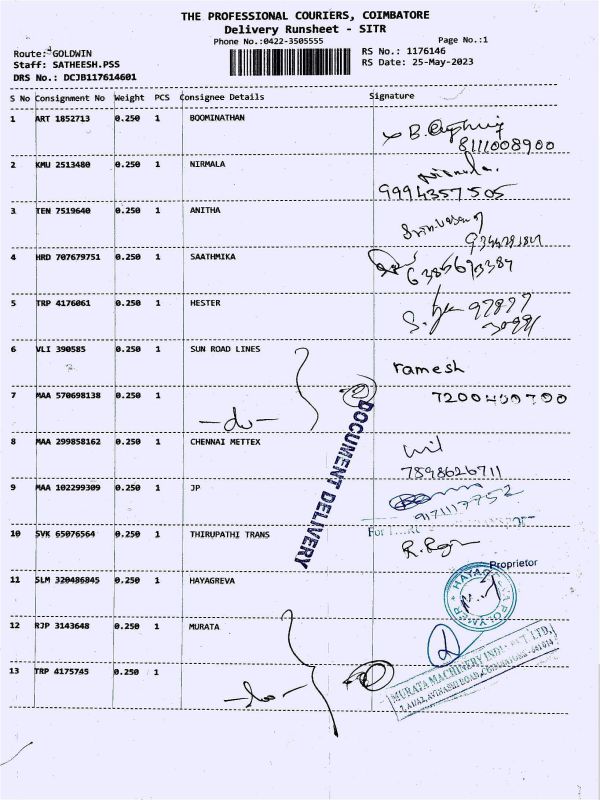 THE PROFESSIONAL COURIERS, COIMBATORE
Delivery Runsheet - SITR
Phone No.:0422-3505555
Page No.:1
Route: GOLDWIN
RS No.: 1176146
Staff: SATHEESH.PSS
RS Date: 25-May-2023
DRS No.: DCJB117614601
S No Consignment No Weight PCS Consignee Details Signature
1 ART 1852713 0.250 1 BOOMINATHAN
8111008900
2 KMU 2513480 0.250 1 NIRMALA
Nirmala
9994357505
3 TEN 7519640 0.250 1 ANITHA
4 HRD 707679751 0.250 1 SAATHMIKA
5 TRP 4176061 0.250 1 HESTER
6 VLI 390585 0.250 1 SUN ROAD LINES
ramesh
7 MAA 570698138 0.250 1
-do-
DOCUMENT DELIVERY
8 MAA 299858162 0.250 1 CHENNAI METTEX
7898626711
9 MAA 102299309 0.250 1 JP
9171117752
10 SVK 65076564 0.250 1 THIRUPATHI TRANS
For
Proprietor
11 SLM 320486845 0.250 1 HAYAGREVA
12 RJP 3143648 0.250 1 MURATA
13 TRP 4175745 0.250 1
-do-
MURATA MACHINERY INDIA PVT. LTD.